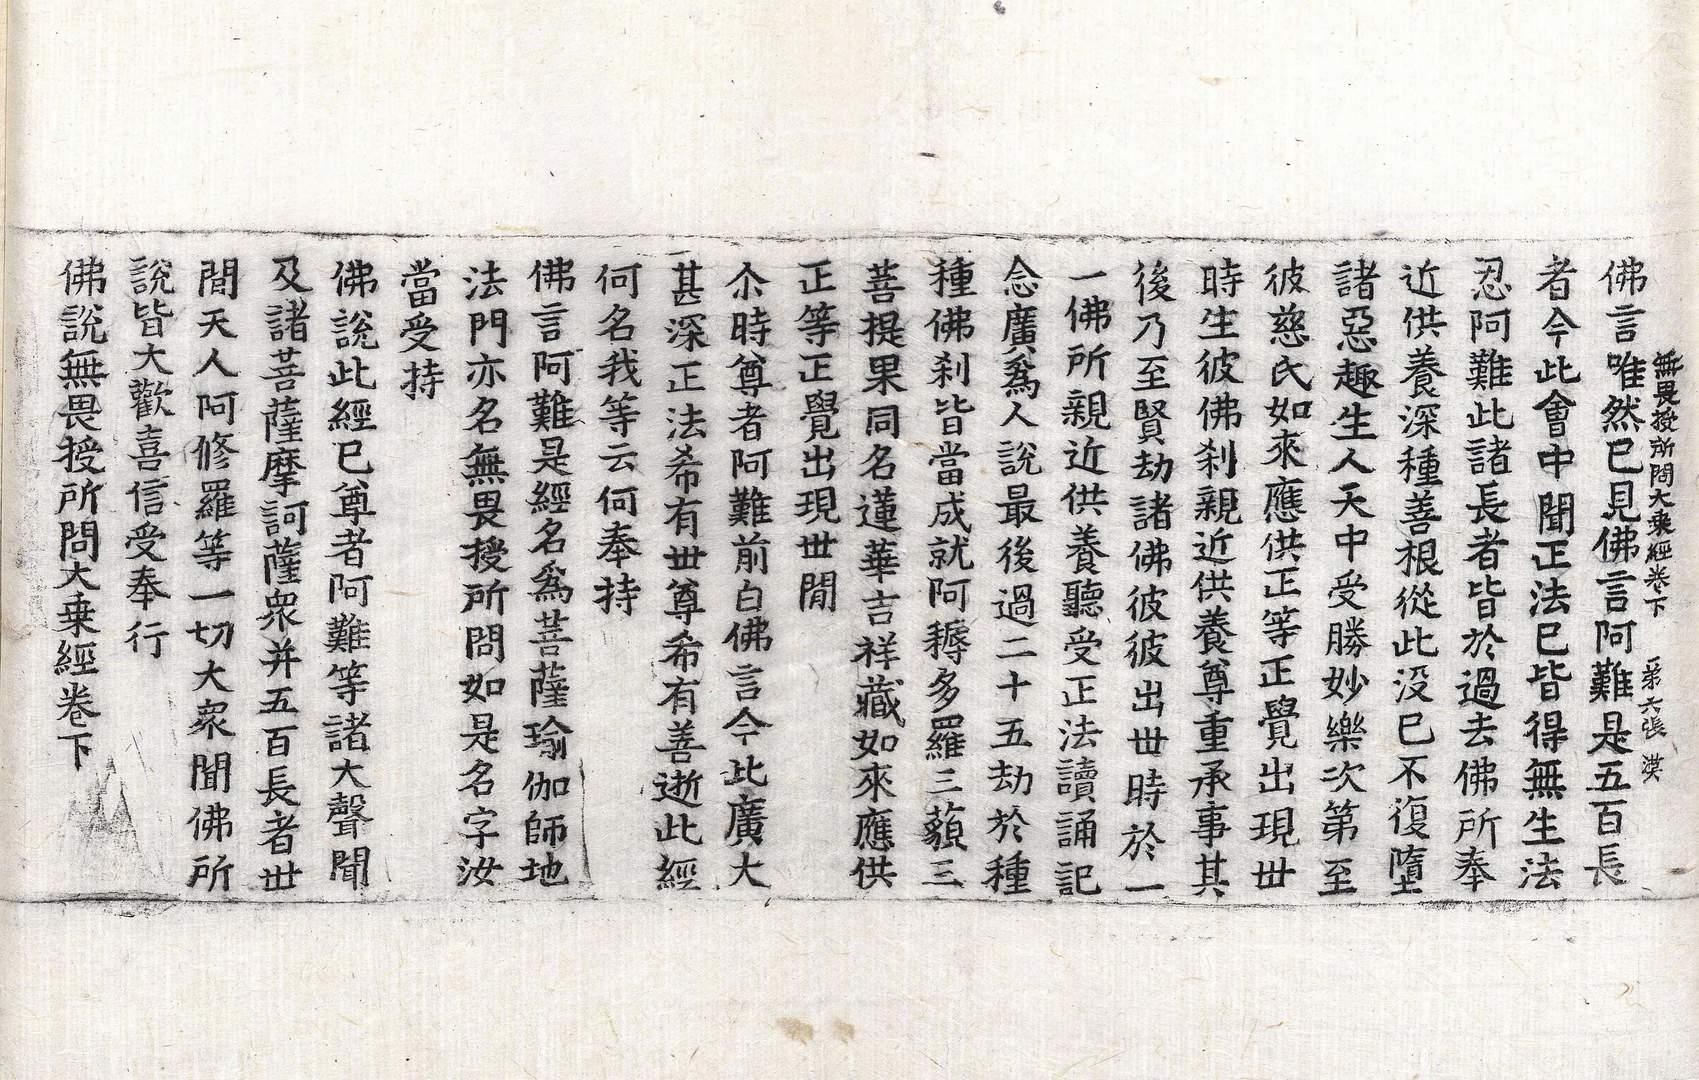 無畏授所問大乗經卷下 第六張 漠
佛言唯然已見佛言阿難是五百長
者今此會中聞正法已皆得無生法
忍阿難此諸長者皆於過去佛所奉
近供養深種善根從此没已不復墮
諸惡趣生人天中受勝妙樂次第至
彼慈氏如來應供正等正覺出現丗
時生彼佛刹親近供養尊重承事其
後乃至賢劫諸佛彼彼出丗時於一
一佛所親近供養聽受正法讀誦記
念廣爲人說最後過二十五劫於種
種佛刹皆當成就阿耨多羅三藐三
菩提果同名蓮華吉祥藏如來應供
正等正覺出現丗閒
尒時尊者阿難前白佛言今此廣大
甚深正法希有丗尊希有善逝此經
何名我等云何奉持
佛言阿難是經名爲菩薩瑜伽師地
法門亦名無畏授所問如是名字汝
當受持
佛說此經已尊者阿難等諸大聲聞
及諸菩薩摩訶薩衆并五百長者丗
閒天人阿修羅等一切大衆聞佛所
說皆大歡喜信受奉行
佛說無畏授所問大乗經卷下